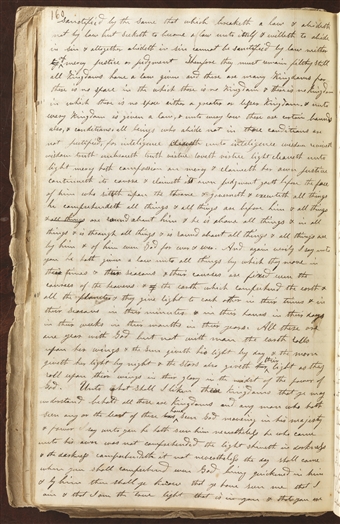 160
sanctified by the same that which breaketh a law & abideth
not by law but seeketh to become a law unto itself & willeth to abide
in sin & altogether abideth in sin cannot be sanctified by law neither
by mercy justice or judgment therefore they must remain filthy still
all Kingdoms have a law given and there are many Kingdoms for
there is no space in the which there is no Kingdom & there is no kingdom
in which there is no space either a greater or lesser Kingdom & unto
every Kingdom is given a law, & unto every law there are certain bounds
also, & conditions all beings who abide not in those conditions are
not justified, for intelligence cleaveth unto intelligence wisdom receiveth
wisdom truth embraceth truth virtue loveth virtue light cleaveth unto
light mercy hath compassion on mercy & claimeth her own justice
continueth its course & claimeth its own judgment goeth before the face
of him who sitteth upon the throne & governeth & executeth all things
he comprehendeth all things & all things are before him & all things
are round about him & he is above all things & in all
things & is through all things & is round about all things & all things are
by him & of him even God for ever & ever. And again verily I say unto
you he hath given a law unto all things by which they move in
their times & their seasons & their courses are fixed even the
courses of the heavens & the earth which comprehend the earth &
all the planets & they give light to each other in their times & in
their seasons in their minutes & in their hours in their days
in their weeks in their months in their years: All these are
one year with God but not with man the earth rolls
upon her wings & the sun giveth his light by day & the moon
giveth her light by night & the stars also giveth their light as they
roll upon their wings in their glory in the midst of the power of
God. Unto what shall I liken these kingdoms that ye may
understand behold all these are kingdoms and any man who hath
seen any or the least of these hath seen God moving in his majesty
& power I say unto you he hath seen him nevertheless he who came
unto his own was not comprehended the light shineth in darkness
& the darkness comprehendeth it not nevertheless the day shall come
when you shall comprehend even God being quickened in him
& by him then shall ye know that ye have seen me that I
am & that I am the true light that is in you & that you are